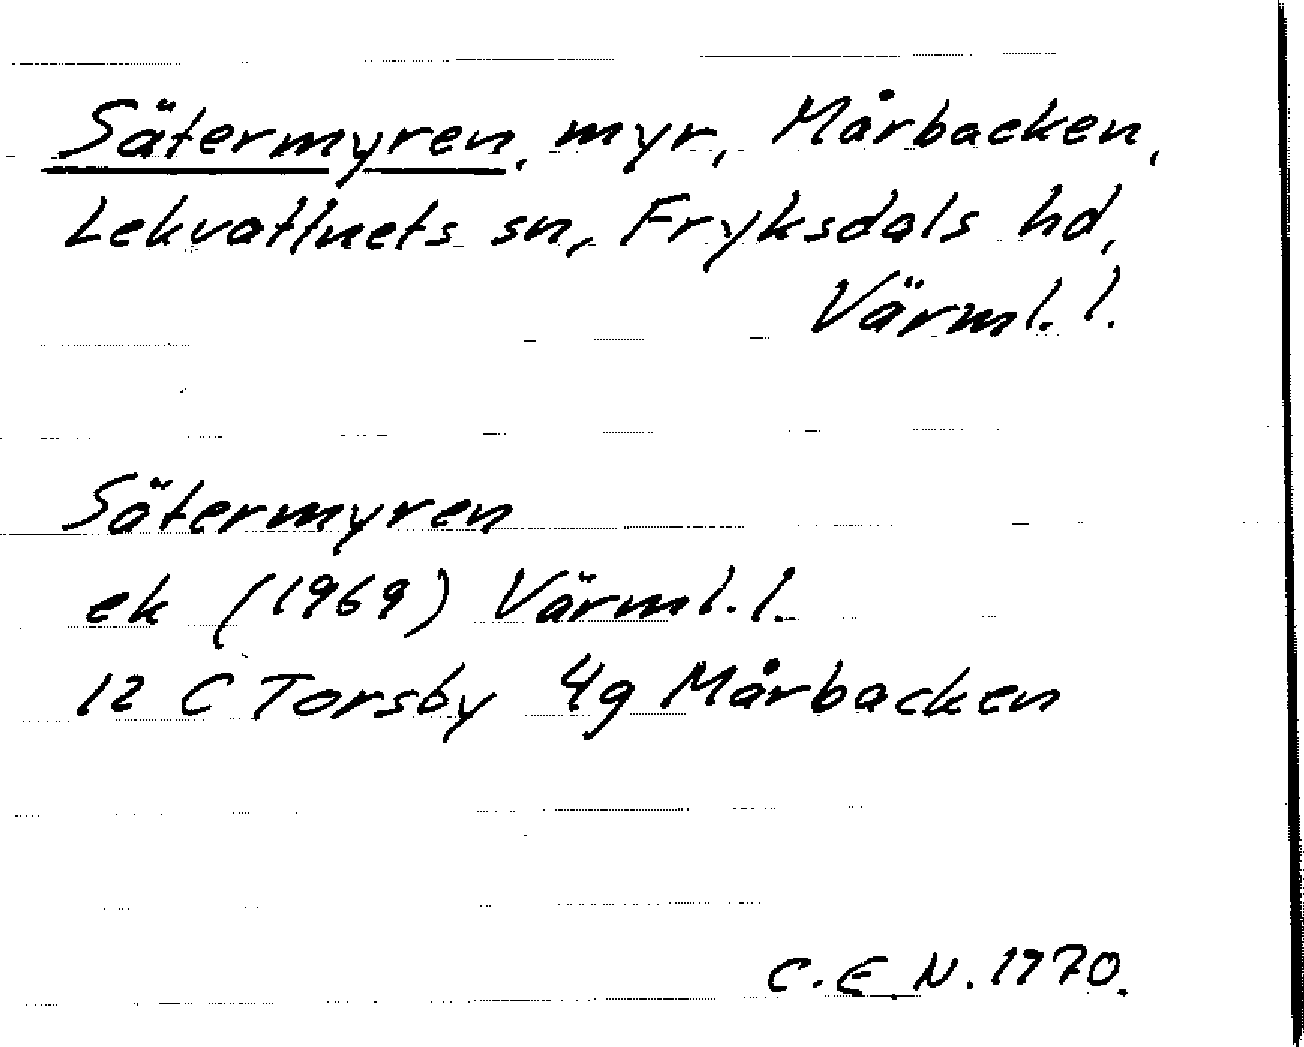 Sätermyren, myr, Mårbacken,
Lekvattnets sn, Fryksdals hd,
Värml. l.
Sätermyren
ek (1969) Värml. l.
12 C Torsby 4g Mårbacken
C. E. N. 1970.